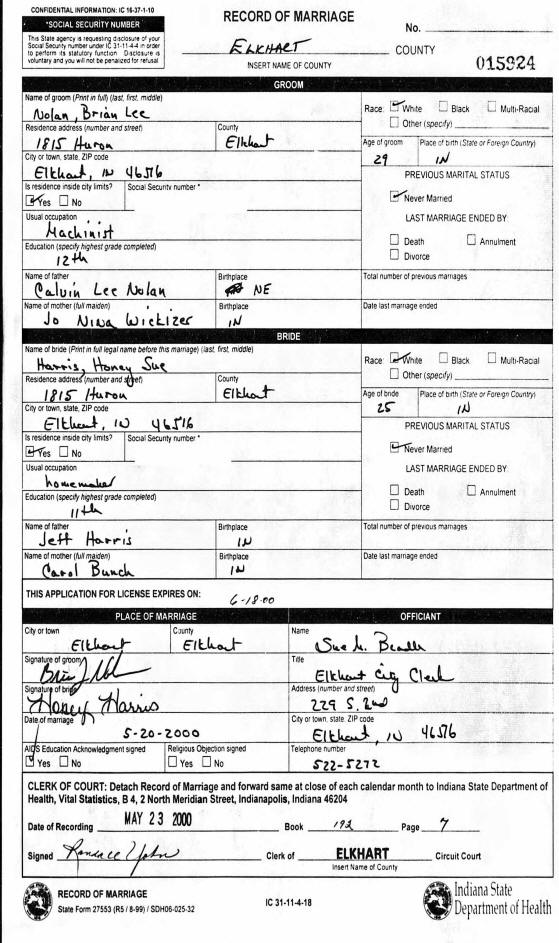 CONFIDENTIAL INFORMATION: IC 16-37-1-10
*SOCIAL SECURITY NUMBER
This State agency is requesting disclosure of your
Social Security number under IC 31-11-4-4 in order
to perform its statutory function. Disclosure is
voluntary and you will not be penalized for refusal
RECORD OF MARRIAGE
No.
ELKHART COUNTY
INSERT NAME OF COUNTY
015924
GROOM
Name of groom (Print in full) (last, first, middle)
Nolan, Brian Lee
Race: White Black Multi-Racial
Other (specify)
Residence address (number and street) County
1815 Huron Elkhart
Age of groom Place of birth (State or Foreign Country)
29 IN
City or town, state, ZIP code
Elkhart, IN 46516
PREVIOUS MARITAL STATUS
Is residence inside city limits? Social Security number *
Yes No
Never Married
Usual occupation
Machinist
LAST MARRIAGE ENDED BY:
Death Annulment
Divorce
Education (specify highest grade completed)
12th
Name of father Birthplace Total number of previous marriages
Calvin Lee Nolan NE
Name of mother (full maiden) Birthplace Date last marriage ended
Jo Nina Wickizer IN
BRIDE
Name of bride (Print in full legal name before this marriage) (last, first, middle)
Harris, Honey Sue
Race: White Black Multi-Racial
Other (specify)
Residence address (number and street) County
1815 Huron Elkhart
Age of bride Place of birth (State or Foreign Country)
25 IN
City or town, state, ZIP code
Elkhart, IN 46516
PREVIOUS MARITAL STATUS
Is residence inside city limits? Social Security number *
Yes No
Never Married
Usual occupation
homemaker
LAST MARRIAGE ENDED BY:
Death Annulment
Divorce
Education (specify highest grade completed)
11th
Name of father Birthplace Total number of previous marriages
Jeff Harris IN
Name of mother (full maiden) Birthplace Date last marriage ended
Carol Bunch IN
THIS APPLICATION FOR LICENSE EXPIRES ON: 6-18-00
PLACE OF MARRIAGE OFFICIANT
City or town County Name
Elkhart Elkhart Sue M. Beadle
Signature of groom Title
Elkhart City Clerk
Signature of bride Address (number and street)
Honey Harris 229 S. 2nd
Date of marriage City or town, state, ZIP code
5-20-2000 Elkhart, IN 46516
AIDS Education Acknowledgment signed Religious Objection signed Telephone number
Yes No Yes No 522-5272
CLERK OF COURT: Detach Record of Marriage and forward same at close of each calendar month to Indiana State Department of
Health, Vital Statistics, B 4, 2 North Meridian Street, Indianapolis, Indiana 46204
Date of Recording MAY 23 2000 Book 192 Page 7
Signed Clerk of ELKHART Circuit Court
Insert Name of County
RECORD OF MARRIAGE
State Form 27553 (R5 / 8-99) / SDH06-025-32
IC 31-11-4-18
Indiana State
Department of Health